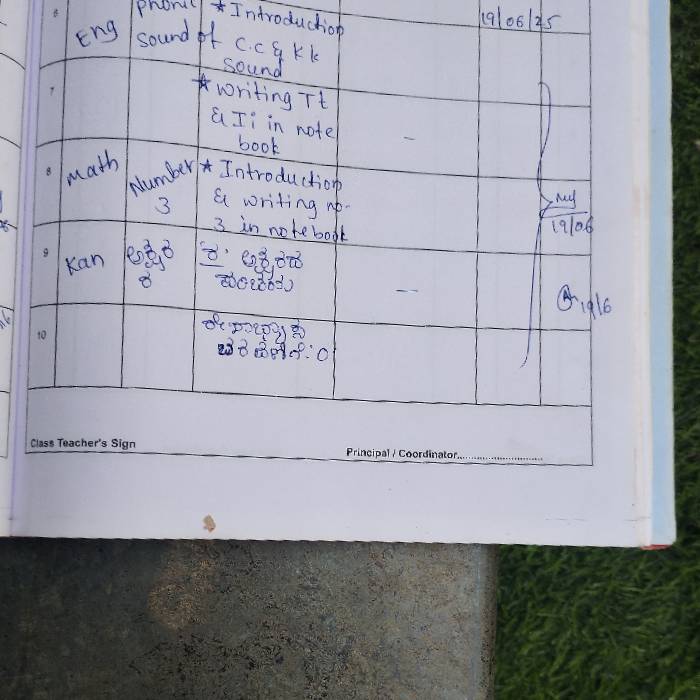 6 Eng Phonic Sound of ★ Introduction C.C & Kk Sound 19/06/25
7 ★ writing Tt & Ii in note book -
8 Math Number 3 ★ Introduction & writing no- 3 in notebook 19/06
9 Kan ಅಕ್ಷರ ಕ 'ಕ' ಅಕ್ಷರದ - 19/6
10
Class Teacher's Sign
Principal / Coordinator